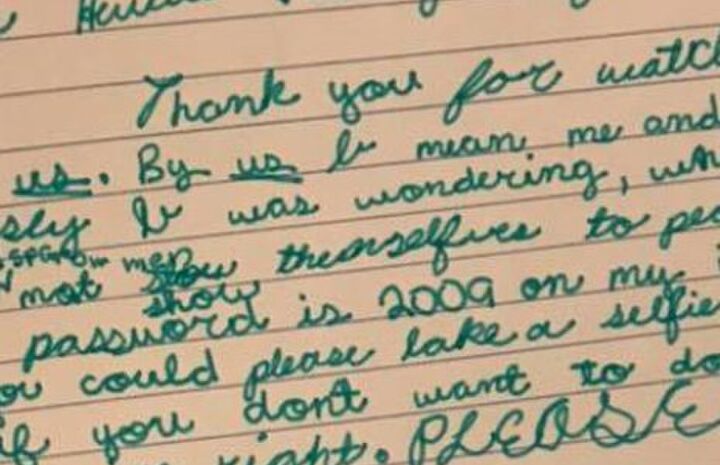 Thank you for watch
us. By us I mean me and
sly I was wondering, wh
men
not show themselfves to pe
show
password is 2009 on my
ou could please take a selfie
if you dont want to do
right. PLEASE